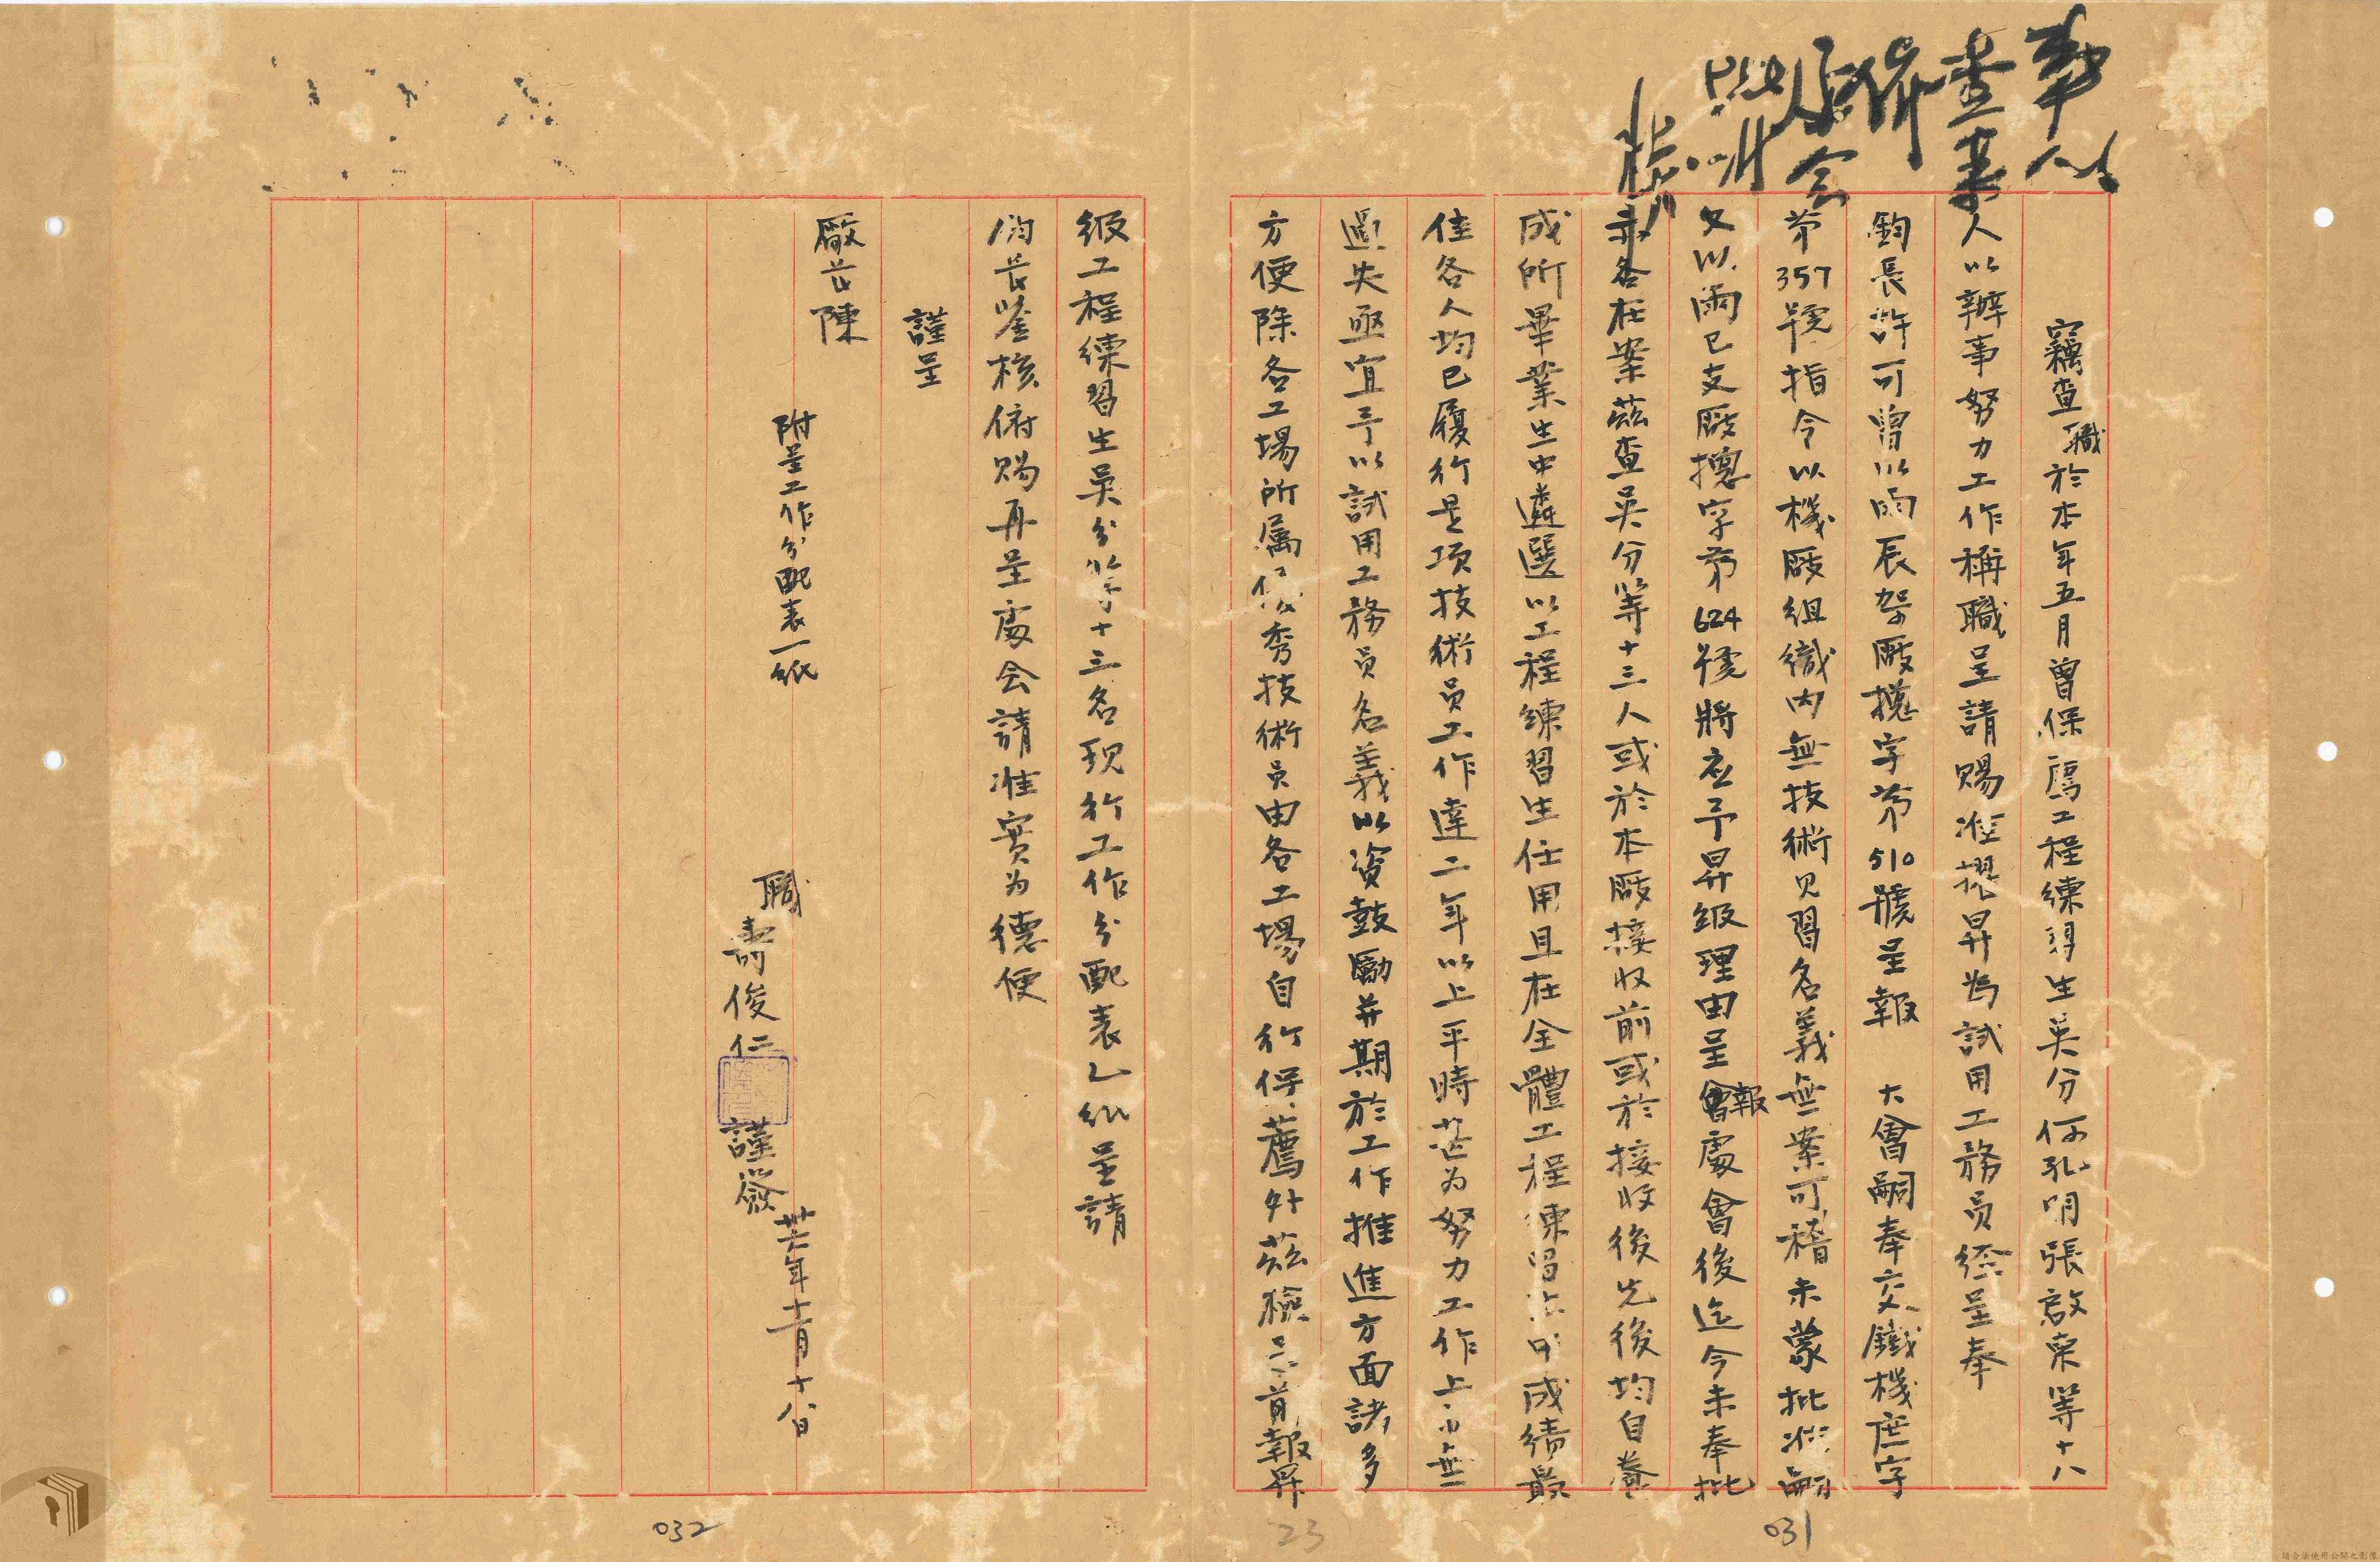 竊查職於本年五月曾保薦工程練習生吳分何孔明張啟東等十八
人以辦事努力工作稱職呈請賜准擢昇為試用工務員經呈奉
鈞長許可曾以雨辰架廠摠字第510號呈報 大會嗣奉交鐵機庶字
第357號指令以機廠組織內無技術見習名義無案可稽未蒙批准嗣
又以雨巳支廠摠字第624號將應予昇級理由呈報處會後迄今未奉批
示各在案茲查吳分等十三人或於本廠接收前或於接收後先後均自養
成所畢業生中遴選以工程練習生任用且在全體工程練習生中成績最
佳各人均已履行是項技術員工作達二年以上平時甚為努力工作上亦無
過失亟宜予以試用工務員名義以資鼓勵并期於工作推進方面諸多
方便除各工場所屬優秀技術員由各工場自行保薦外茲檢具前報昇
級工程練習生吳分等十三名現行工作分配表乙紙呈請
鈞長鑒核俯賜再呈處会請准實為德便
謹呈
廠長陳
附呈工作分配表一紙
職壽俊仁謹簽
卅七年十一月十八日
032
23
031
請合法使用公開之影像